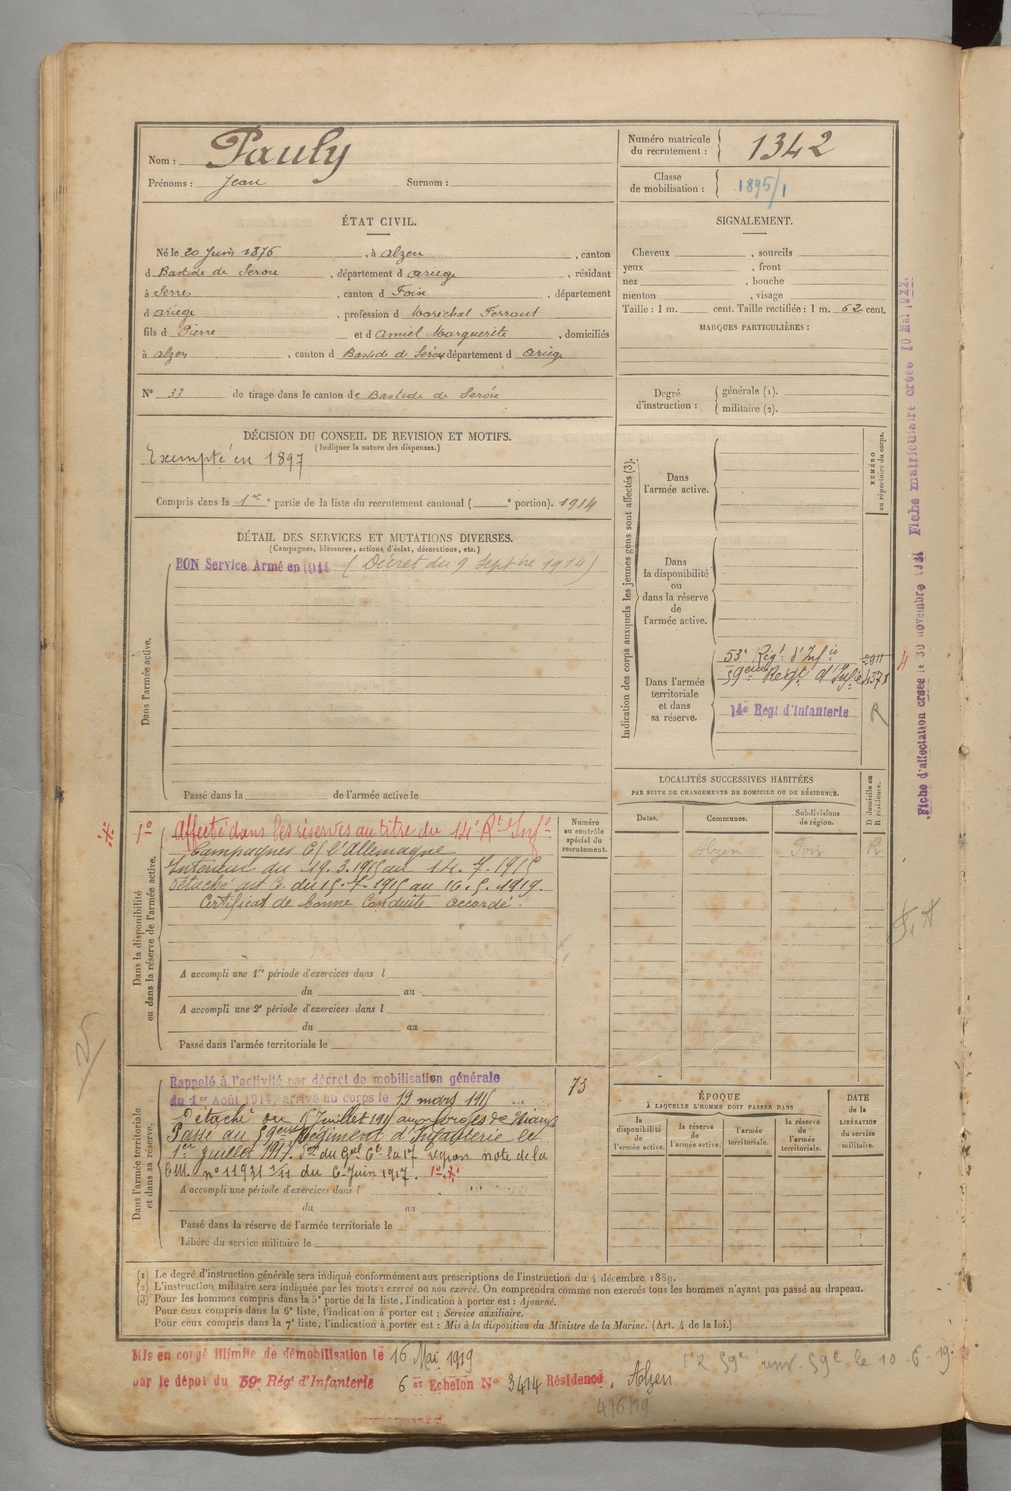 Nom : Pauly
Prénoms : Jean Surnom :
Numéro matricule du recrutement : 1342
Classe de mobilisation : 1895/1
ÉTAT CIVIL.
Né le 20 Juin 1876, à Alzen, canton
d Bastide de Serou, département d Ariège, résidant
à Serres, canton d Foix, département
d Ariège, profession d Maréchal Ferrant
fils d Pierre et d Amiel Marguerite, domiciliés
à Alzen, canton d Bastide de Serou département d Ariège
N° 33 de tirage dans le canton de Bastide de Serou
SIGNALEMENT.
Cheveux , sourcils
yeux , front
nez , bouche
menton , visage
Taille : 1 m. cent. Taille rectifiée : 1 m. 62 cent.
MARQUES PARTICULIÈRES :
Degré d'instruction : générale (1).
militaire (2).
DÉCISION DU CONSEIL DE REVISION ET MOTIFS.
(Indiquer la nature des dispenses.)
Exempté en 1897
Compris dans la 1re partie de la liste du recrutement cantonal ( e portion). 1914
DÉTAIL DES SERVICES ET MUTATIONS DIVERSES.
(Campagnes, blessures, actions d'éclat, décorations, etc.)
BON Service Armé en 1914 (Décret du 9 Septbre 1914)
Dans l'armée active.
Passé dans la de l'armée active le
Indication des corps auxquels les jeunes gens sont affectés (3).
NUMÉRO au répertoire du corps.
Dans l'armée active.
Dans la disponibilité ou dans la réserve de l'armée active.
Dans l'armée territoriale et dans sa réserve.
53e Régt d'Infie 2911
59eme Regt d'Infie
14e Regt d'Infanterie R
LOCALITÉS SUCCESSIVES HABITÉES
PAR SUITE DE CHANGEMENTS DE DOMICILE OU DE RÉSIDENCE.
Dates. Communes. Subdivisions de région. D domicile ou R résidence.
Alzen Foix R
Dans la disponibilité ou dans la réserve de l'armée active.
Numéro au contrôle spécial du recrutement.
1° Affecté dans les réserves au titre du 14e Rt d'Infie
Campagnes Ct l'Allemagne
Intérieur du 19.3.1915 au 14.7.1915
Détaché du 15.7.1915 au 16.5.1919.
Certificat de bonne Conduite accordé.
A accompli une 1re période d'exercices dans l
du au
A accompli une 2e période d'exercices dans l
du au
Passé dans l'armée territoriale le
Dans l'armée territoriale et dans sa réserve.
Rappelé à l'activité par décret de mobilisation générale
du 1er Août 1914, arrivé au corps le 19 mars 1915
73
Détaché au 15 Juillet 1915 aux forges de
Passé au 59eme Régiment d'Infanterie le
1er Juillet 1917. du Gal Ct la 17e région note de la
E.M. n° 11921 du 6 Juin 1917. 1°
A accompli une période d'exercices dans l
du au
Passé dans la réserve de l'armée territoriale le
Libéré du service militaire le
ÉPOQUE
À LAQUELLE L'HOMME DOIT PASSER DANS
la disponibilité de l'armée active.
la réserve de l'armée active.
l'armée territoriale.
la réserve de l'armée territoriale.
DATE de la LIBÉRATION du service militaire.
(1) Le degré d'instruction générale sera indiqué conformément aux prescriptions de l'instruction du 4 décembre 1889.
(2) L'instruction militaire sera indiquée par les mots : exercé ou non exercé. On comprendra comme non exercés tous les hommes n'ayant pas passé au drapeau.
(3) Pour les hommes compris dans la 5e partie de la liste, l'indication à porter est : Ajourné.
Pour ceux compris dans la 6e liste, l'indication à porter est : Service auxiliaire.
Pour ceux compris dans la 7e liste, l'indication à porter est : Mis à la disposition du Ministre de la Marine. (Art. 4 de la loi.)
Mis en congé illimité de démobilisation le 16 Mai 1919
par le dépôt du 59e Rég' d'Infanterie 6 Echelon N° 3414 Résidence, Alzen
59e le 10-6-19
4/6/19
Fiche d'affectation créée le 30 novembre 1921 Fiche matriculaire créée 10 Mai 1922